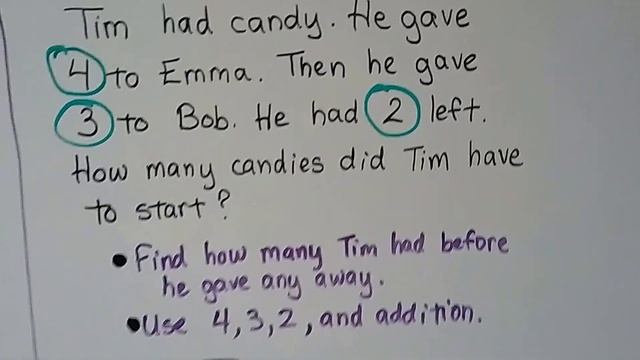 Tim had candy. He gave
4 to Emma. Then he gave
3 to Bob. He had 2 left.
How many candies did Tim have
to start?
• Find how many Tim had before
he gave any away.
• Use 4, 3, 2, and addition.